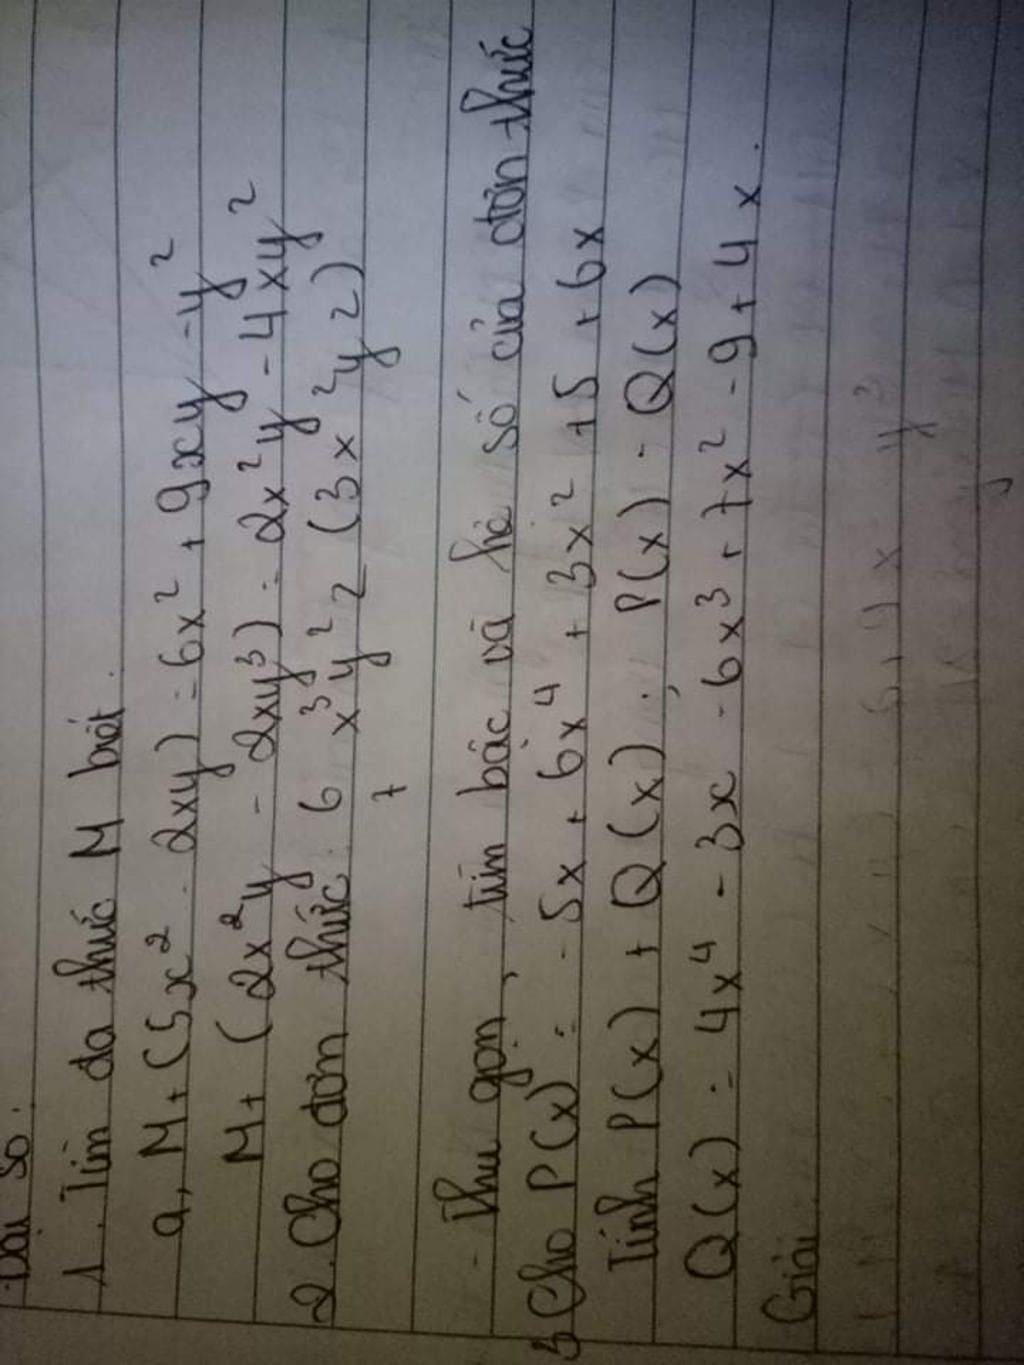 Đại số:
1. Tìm đa thức M biết.
a, M + (5x² - 2xy) = 6x² + 9xy - y²
M + (2x²y - 2xy³) = 2x²y - 4xy²
2. Cho đơn thức: 6/7 x³y²z (3x²yz)
- Thu gọn, tìm bậc và hệ số của đơn thức
3 Cho P(x) = -5x + 6x⁴ + 3x² + 5 + 6x
Tính P(x) + Q(x); P(x) - Q(x)
Q(x) = 4x⁴ - 3x - 6x³ + 7x² - 9 + 4x.
Giải